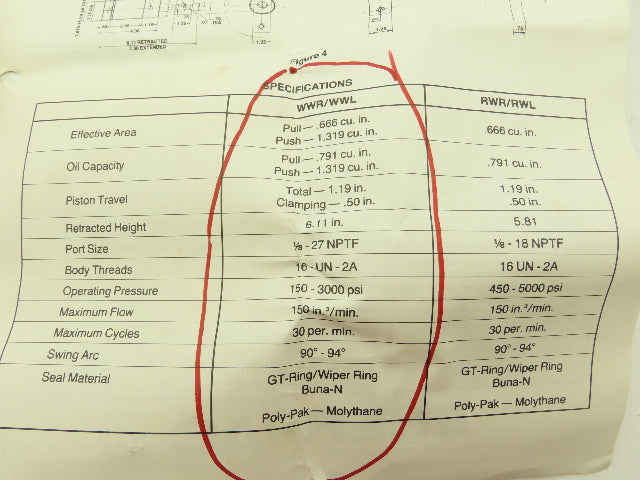 6.11 RETRACTED
7.30 EXTENDED
1.25
1.25
.75
Figure 4
SPECIFICATIONS
WWR/WWL RWR/RWL
Effective Area Pull — .666 cu. in. .666 cu. in.
Push — 1.319 cu. in.
Oil Capacity Pull — .791 cu. in. .791 cu. in.
Push — 1.319 cu. in.
Piston Travel Total — 1.19 in. 1.19 in.
Clamping — .50 in. .50 in.
Retracted Height 6.11 in. 5.81
Port Size ⅛ - 27 NPTF ⅛ - 18 NPTF
Body Threads 16 - UN - 2A 16 UN - 2A
Operating Pressure 150 - 3000 psi 450 - 5000 psi
Maximum Flow 150 in.³/min. 150 in.³/min.
Maximum Cycles 30 per. min. 30 per. min.
Swing Arc 90° - 94° 90° - 94°
Seal Material GT-Ring/Wiper Ring GT-Ring/Wiper Ring
Buna-N Buna-N
Poly-Pak — Molythane Poly-Pak — Molythane